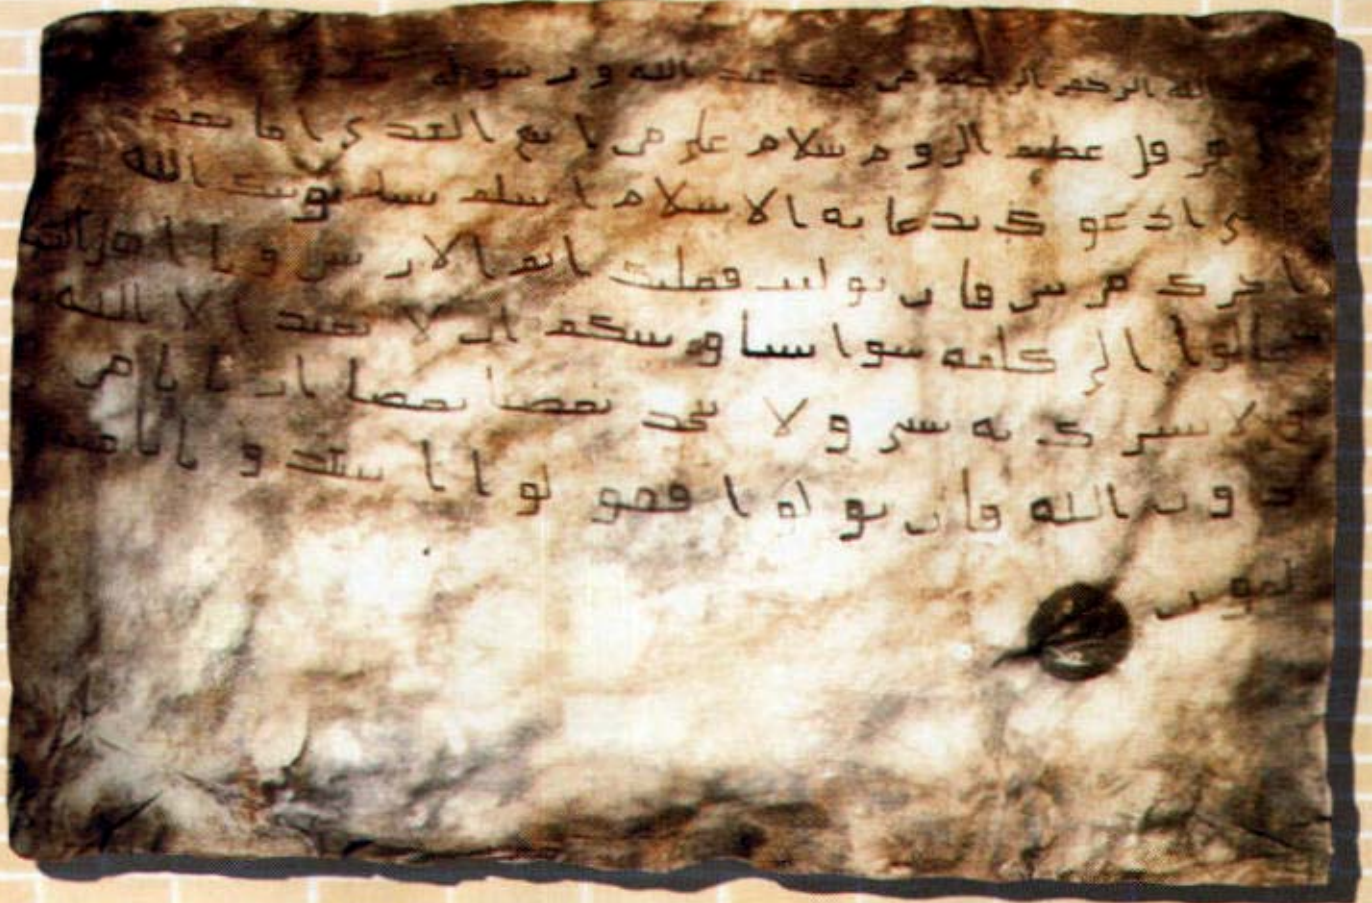 الله الرحمن الرحيم من محمد عبد الله ورسوله
هرقل عظيم الروم سلام على من اتبع الهدى اما بعد
ادعوك بدعاية الاسلام اسلم تسلم يوتك الله
اجرك مرتين فان توليت فعليك اثم الاريسين و يا اهل الكتب
تعالوا الى كلمة سوا بيننا وبينكم ان لا نعبد الا الله
و لا نشرك به شي و لا يتخذ بعضنا بعضا اربابا من
دون الله فان تولوا فقولوا اشهدوا بانا مس
لمون